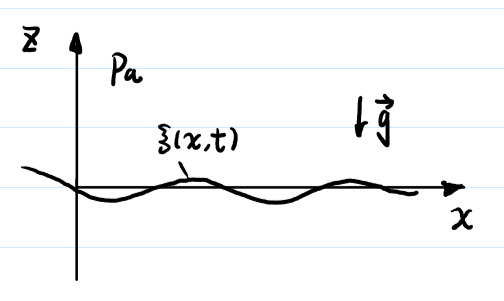 z
Pa
ξ(x,t)
g⃗
x